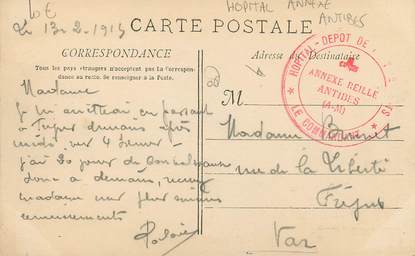 10€
HOPITAL ANNEXE
ANTIBES
Le 13-2-1915
CARTE POSTALE
CORRESPONDANCE
Tous les pays étrangers n'acceptent pas la Correspon-
dance au recto. Se renseigner à la Poste.
Adresse du Destinataire
HOPITAL-DEPOT DE
ANNEXE REILLE
ANTIBES
(A-M)
LE COMMANDANT
M.
Madame
Je m'arrêterai en passant
à Fréjus demain après
midi vers 4 heures
j'ai 20 jours de Convalescence
donc à demain, recevez
madame mes plus
Madame
rue de la Liberté
Fréjus
Var